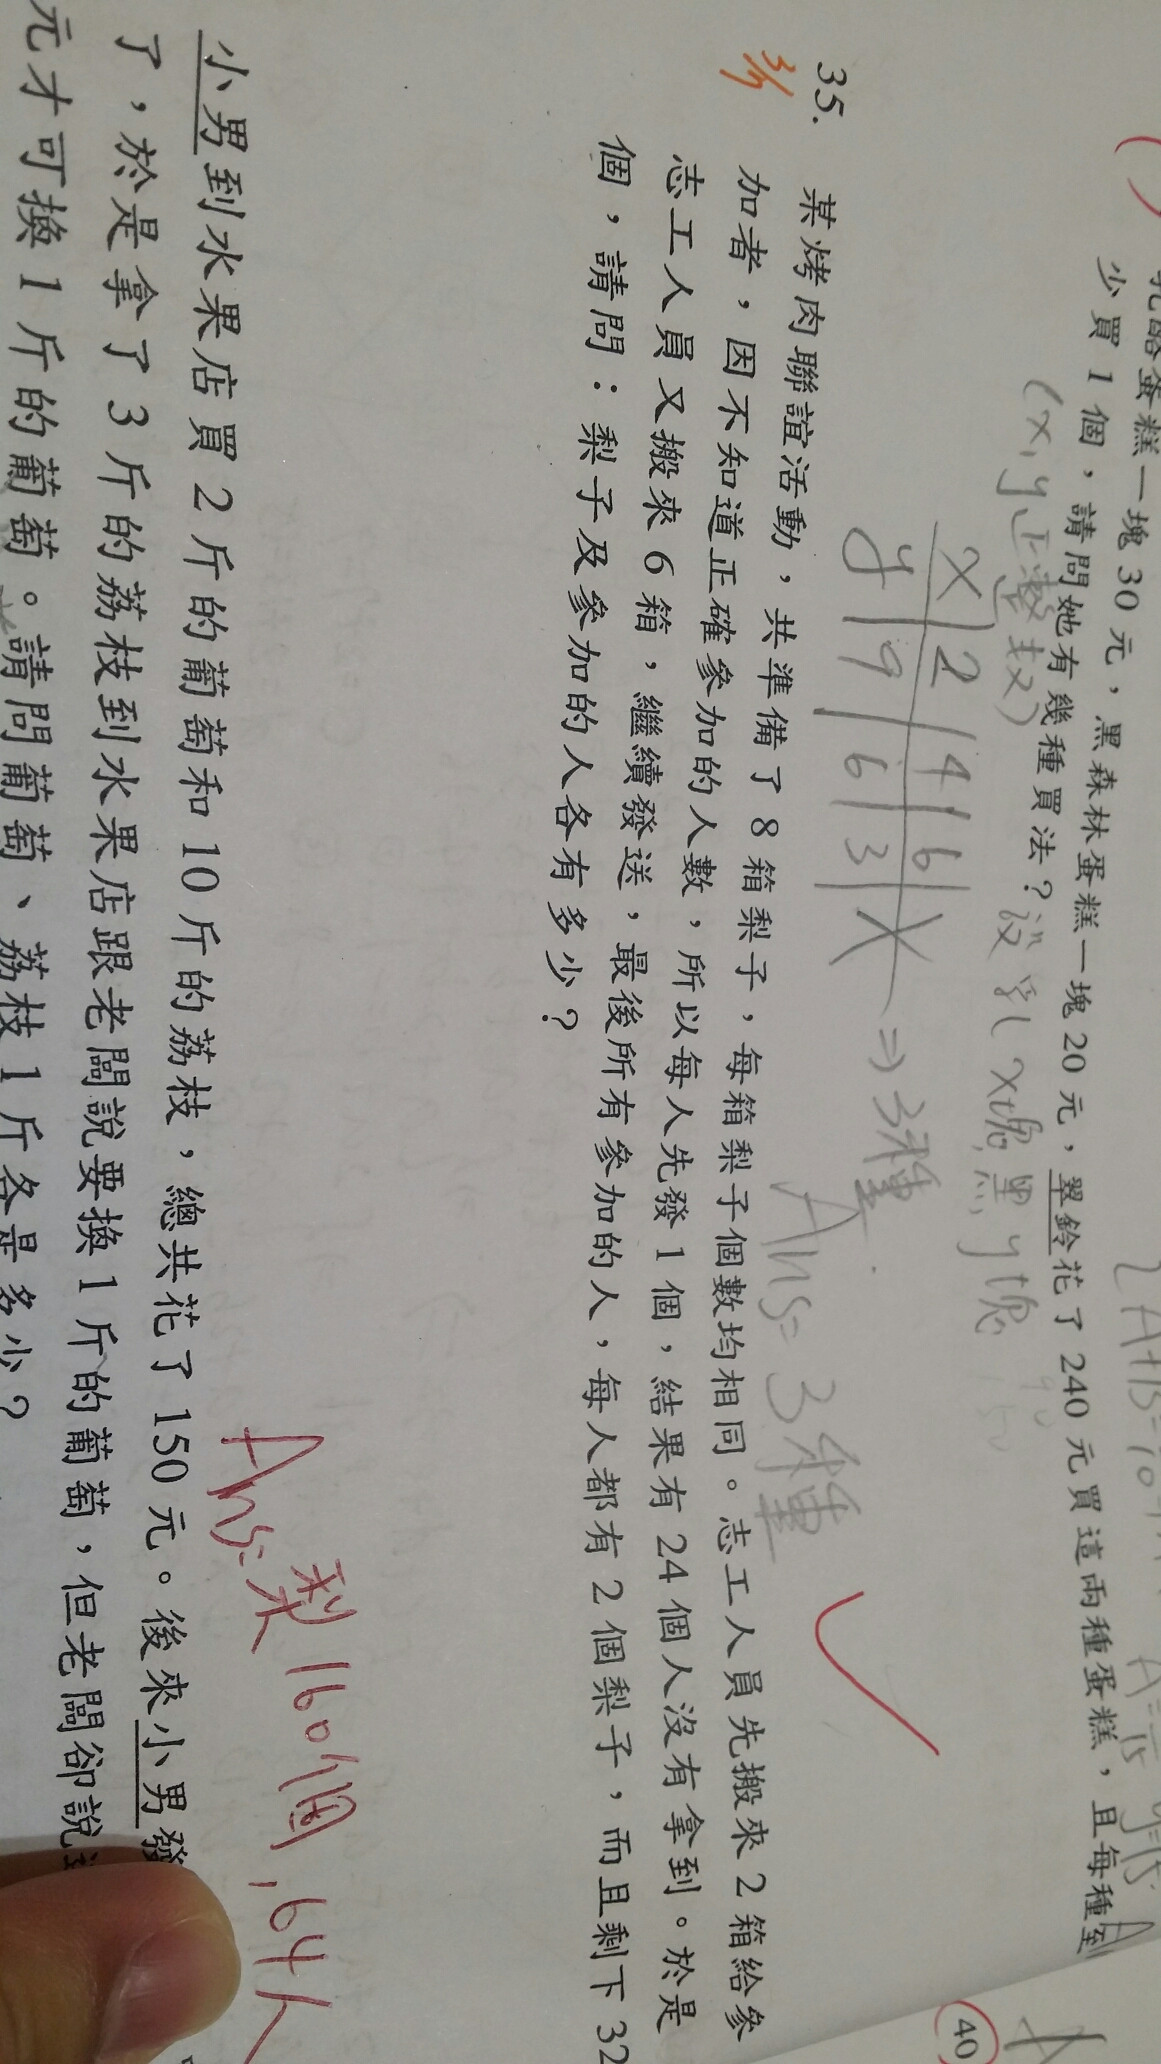 乳酪蛋糕一塊30元，黑森林蛋糕一塊20元，翠鈴花了240元買這兩種蛋糕，且每種至
少買1個，請問她有幾種買法？設乳x塊,黑y塊
(x,y正整數)
x 2 4 6 X
y 9 6 3 ⇒3種
Ans=3種
35.
某烤肉聯誼活動，共準備了8箱梨子，每箱梨子個數均相同。志工人員先搬來2箱給參
加者，因不知道正確參加的人數，所以每人先發1個，結果有24個人沒有拿到。於是
志工人員又搬來6箱，繼續發送，最後所有參加的人，每人都有2個梨子，而且剩下32
個，請問：梨子及參加的人各有多少？
Ans=梨160個,64人
小男到水果店買2斤的葡萄和10斤的荔枝，總共花了150元。後來小男發
了，於是拿了3斤的荔枝到水果店跟老闆說要換1斤的葡萄，但老闆卻說
元才可換1斤的葡萄。請問葡萄、荔枝1斤各是多少？
40